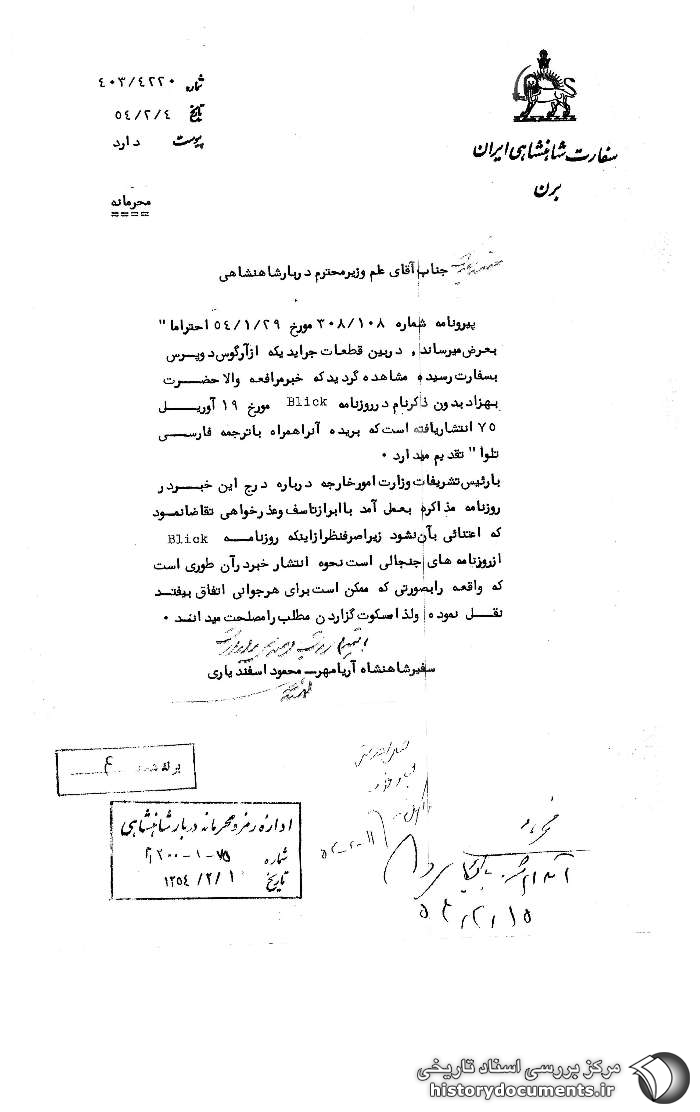 شماره ۴۰۳/۴۲۲۰
تاریخ ۵۴/۲/۴
پیوست دارد
سفارت شاهنشاهی ایران
برن
محرمانه
جناب آقای علم وزیر محترم دربار شاهنشاهی
پیرونامه شماره ۳۰۸/۱۰۸ مورخ ۵٤/۱/۲۹ احتراما"
بعرض میرساند، دربین قطعات جرایدیکه ازآرگوس دوپرس
بسفارت رسیده مشاهده گردید که خبرمرافعه والاحضرت
بهزاد بدون ذکرنام درروزنامه Blick مورخ ۱۹ آوریل
۷۵ انتشاریافته است که بریده آنراهمراه باترجمه فارسی
تلوا" تقدیم میدارد ۰
بارئیس تشریفات وزارت امورخارجه درباره درج این خبردر
روزنامه مذاکره بعمل آمد باابرازتاسف وعذرخواهی تقاضانمود
که اعتنائی بآن نشود زیراصرفنظرازاینکه روزنامه Blick
ازروزنامه های جنجالی است نحوه انتشار خبردرآن طوری است
که واقعه رابصورتی که ممکن است برای هرجوانی اتفاق بیفتد
نقل نموده ولذا مسکوت گزاردن مطلب رامصلحت میدانند ۰
سفیرشاهنشاه آریامهر ـ محمود اسفندیاری
اداره رمز و محرمانه دربار شاهنشاهی
شماره ۷۵-۱-۲۰۰م
تاریخ ۱۳۵٤/۲/۱
محرمانه
۵۴،۲،۱۵
۵۴-۲-۱۱
مرکز بررسی اسناد تاریخی
historydocuments.ir